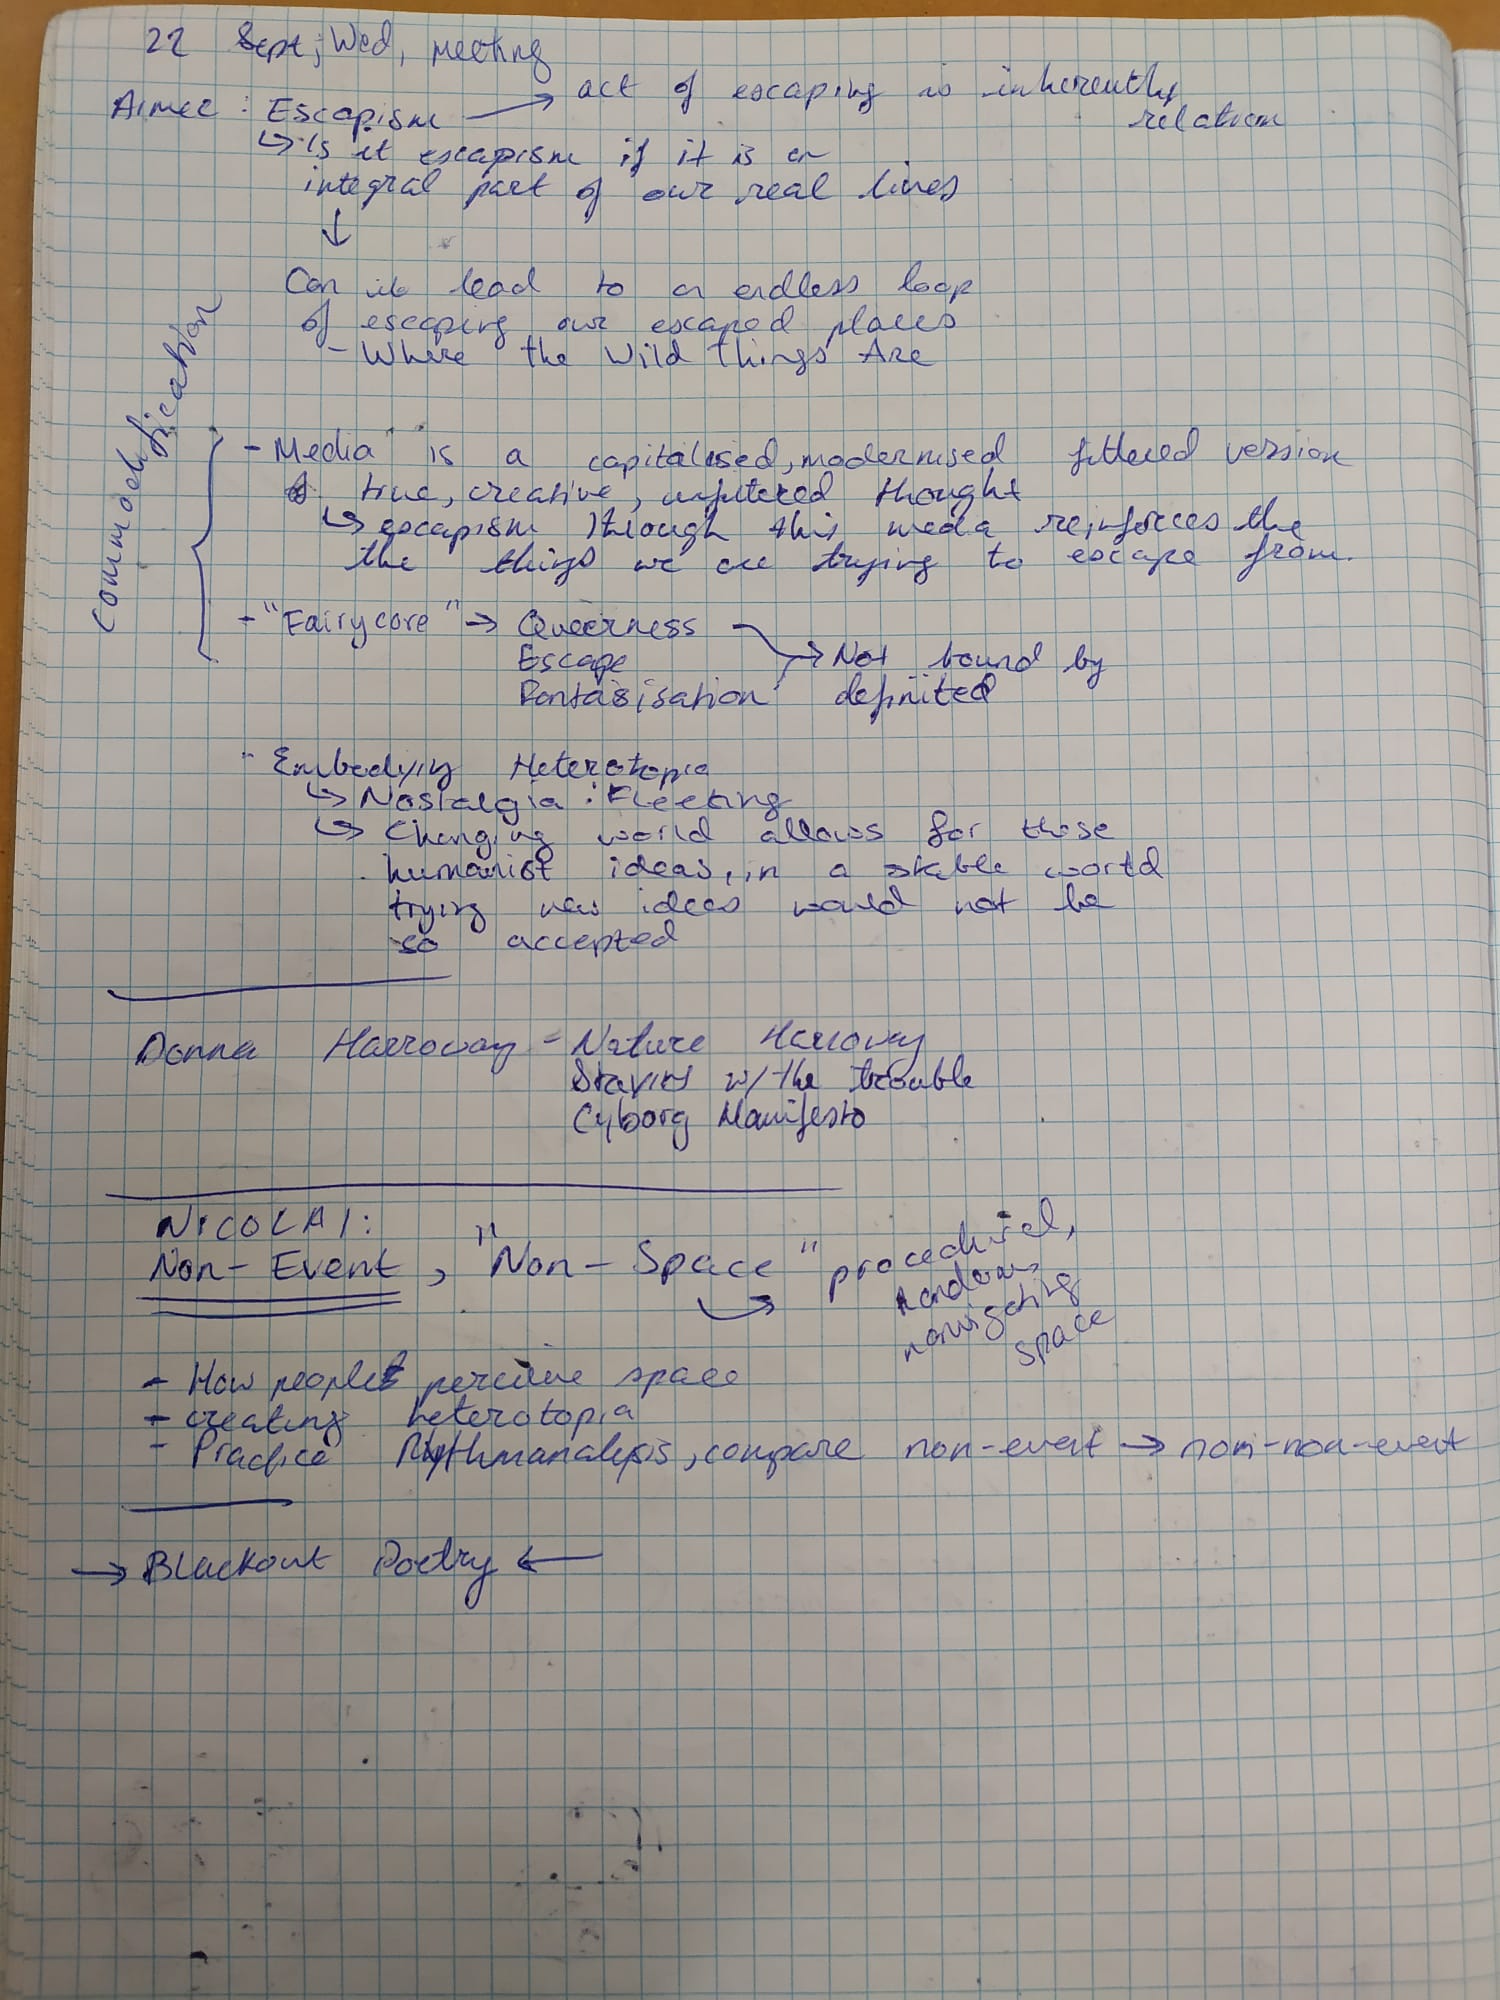 22 Sept, Wed, meeting
Aimee : Escapism → act of escaping is inherently
relation
↳ Is it escapism if it is an
integral part of our real lives
↓
Can it lead to a endless loop
of escaping our escaped places
- Where the Wild Things Are
Commodification
- Media is a capitalised, modernised filtered version
of true, creative, unfiltered thought
↳ escapism through this media reinforces the
the things we are trying to escape from.
- "Fairycore" → Queerness
Escape → Not bound by
Fantasisation definited
- Embodying Heterotopia
↳ Nostalgia : Fleeting
↳ Changing world allows for these
humanist ideas, in a stable world
trying new ideas would not be
so accepted
Donna Harroway - Nature Harroway
Staying w/ the trouble
Cyborg Manifesto
NICOLAI:
Non-Event, "Non-Space" procedural,
random,
navigating
space
- How people perceive space
- creating heterotopia
- Practice Rhythmanalysis, compare non-event → non-non-event
→ Blackout Poetry ←